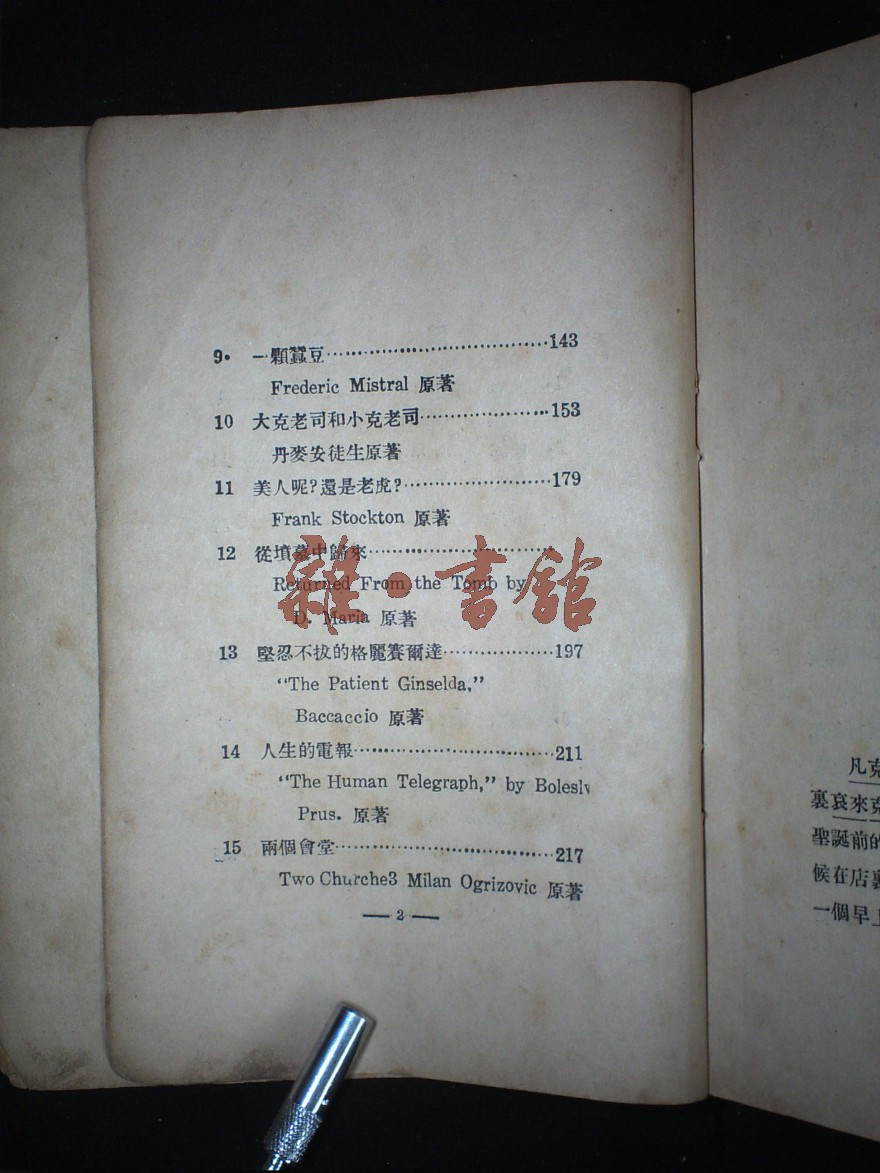 9. 一顆蠶豆……143
Frederic Mistral 原著
10 大克老司和小克老司……153
丹麥安徒生原著
11 美人呢?還是老虎?……179
Frank Stockton 原著
12 從墳墓中歸來……
Returned From the Tomb by
D. Maria 原著
13 堅忍不拔的格麗賽爾達……197
"The Patient Ginselda,"
Baccaccio 原著
14 人生的電報……211
"The Human Telegraph," by Bolesl
Prus. 原著
15 兩個會堂……217
Two Churche3 Milan Ogrizovic 原著
— 2 —
雜·書館
凡克
裏哀來克
聖誕前的
候在店裏
一個早上